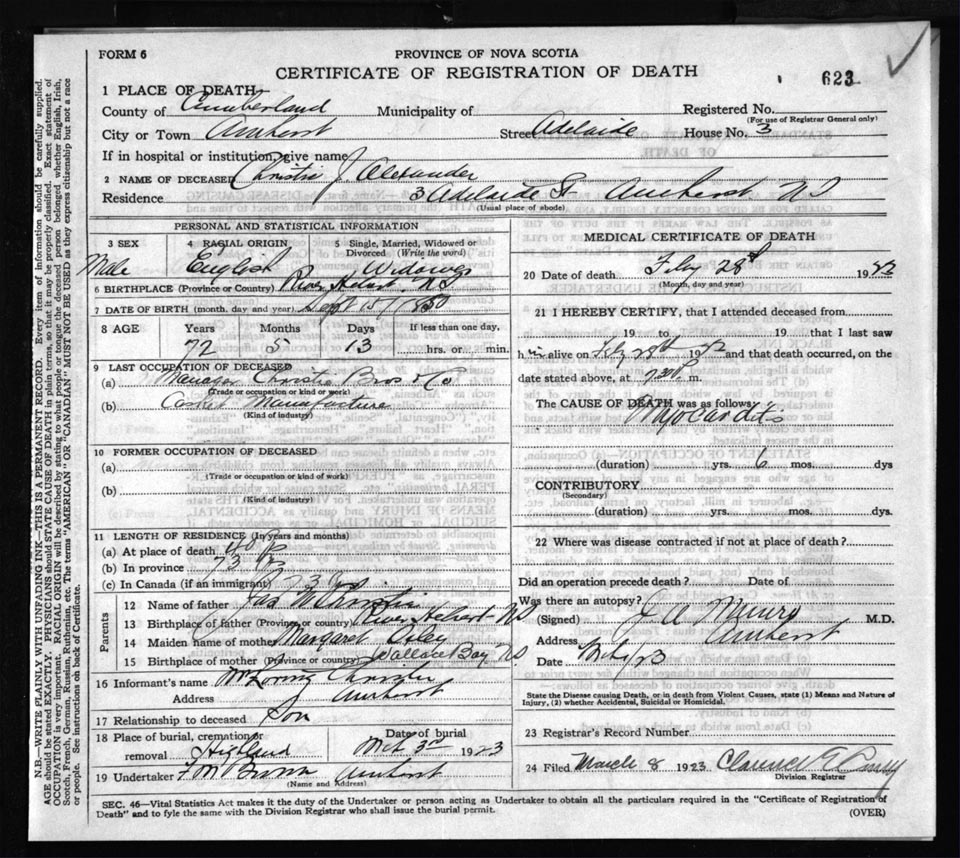 FORM 6
PROVINCE OF NOVA SCOTIA
CERTIFICATE OF REGISTRATION OF DEATH
623
1 PLACE OF DEATH
County of Cumberland Municipality of Registered No.
(For use of Registrar General only)
City or Town Amherst Street Adelaide House No. 3
If in hospital or institution, give name
2 NAME OF DECEASED Christie J. Alexander
Residence 3 Adelaide St. Amherst NS
(Usual place of abode)
PERSONAL AND STATISTICAL INFORMATION
3 SEX 4 RACIAL ORIGIN 5 Single, Married, Widowed or Divorced (Write the word)
Male English Widower
6 BIRTHPLACE (Province or Country) River Hebert NS
7 DATE OF BIRTH (month, day and year) Sept 15/1850
8 AGE Years Months Days If less than one day,
72 5 13 hrs. or min.
9 LAST OCCUPATION OF DECEASED
(a) Manager Christie Bros & Co
(Trade or occupation or kind of work)
(b) Casket Manufacture
(Kind of industry)
10 FORMER OCCUPATION OF DECEASED
(a)
(Trade or occupation or kind of work)
(b)
(Kind of industry)
11 LENGTH OF RESIDENCE (In years and months)
(a) At place of death 40
(b) In province 73
(c) In Canada (if an immigrant) 73 yrs
Parents
12 Name of father Jas Christie
13 Birthplace of father (Province or country) River Hebert NS
14 Maiden name of mother Margaret
15 Birthplace of mother (Province or country) Wallace Bay NS
16 Informant's name Christie
Address Amherst
17 Relationship to deceased Son
18 Place of burial, cremation or removal Highland Date of burial Mch 3rd 1923
19 Undertaker F. M. Brown Amherst
(Name and Address)
MEDICAL CERTIFICATE OF DEATH
20 Date of death Feby 28th 1923
(Month, day and year)
21 I HEREBY CERTIFY, that I attended deceased from
19 to 19 that I last saw
him alive on Feby 28th 19 and that death occurred, on the
date stated above, at 7 30 P. m.
The CAUSE OF DEATH was as follows:
Myocarditis
(duration) yrs. 6 mos. dys
CONTRIBUTORY
(Secondary)
(duration) yrs. mos. dys
22 Where was disease contracted if not at place of death?
Did an operation precede death? Date of
Was there an autopsy?
(Signed) J. A. Munro M.D.
Address Amherst
Date Mch /23
State the Disease causing Death, or in death from Violent Causes, state (1) Means and Nature of Injury, (2) whether Accidental, Suicidal or Homicidal.
23 Registrar's Record Number
24 Filed March 8 1923 Clarence
Division Registrar
SEC. 46—Vital Statistics Act makes it the duty of the Undertaker or person acting as Undertaker to obtain all the particulars required in the "Certificate of Registration of
Death" and to fyle the same with the Division Registrar who shall issue the burial permit.
(OVER)
N.B.—WRITE PLAINLY WITH UNFADING INK—THIS IS A PERMANENT RECORD. Every item of information should be carefully supplied.
AGE should be stated EXACTLY. PHYSICIANS should STATE CAUSE OF DEATH in plain terms, so that it may be properly classified. Exact statement of
OCCUPATION is very important. RACIAL ORIGIN will be described by stating to what people or tongue the deceased person belonged, whether English, Irish,
Scotch, French, German, Russian, Ruthenian, etc. The terms "AMERICAN" OR "CANADIAN" MUST NOT BE USED as they express citizenship but not a race
or people. See instructions on back of Certificate.